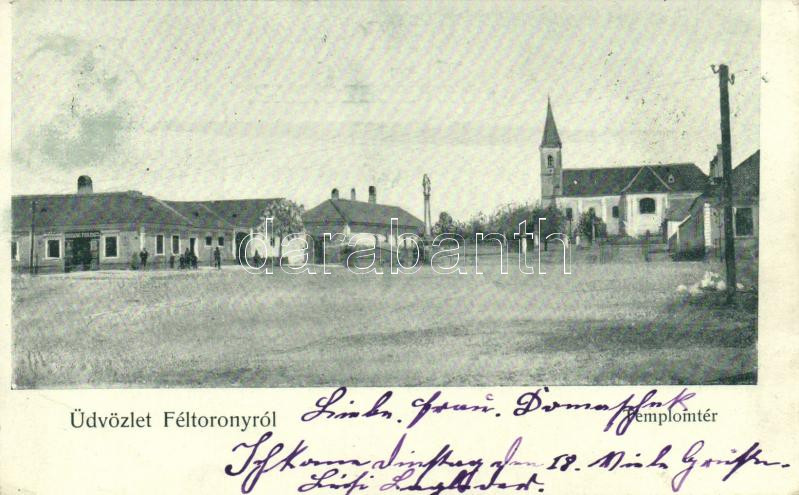 darabanth
Üdvözlet Féltoronyról
Templomtér
Liebe Frau Domaschek
Ich kome Dinstag den 18. Viele Grüße